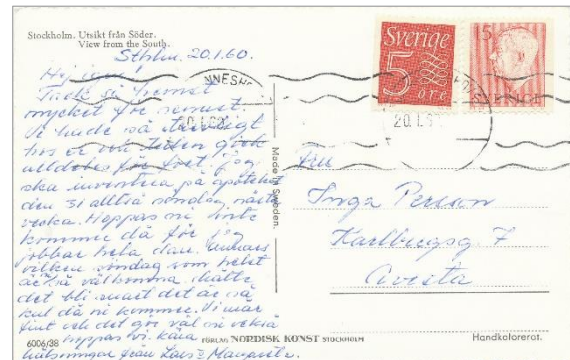 Stockholm. Utsikt från Söder.
View from the South.
Sthlm. 20.1.60.
Hej
Tack så hemskt
mycket för senast.
Vi hade så trevligt
hos er och tiden gick
alldeles för fort. Jag
ska inventera på apoteket
den 31 alltså söndag, nästa
vecka. Hoppas ni inte
kommer då för jag
jobbar hela dan, annars
vilken söndag som helst
är ni välkomna
det bli snart det är så
kul då ni kommer. Vi mår
fint och det gör väl ni också
hoppas vi. Kära
hälsningar från Lars o Margareta.
6006/38
FÖRLAG NORDISK KONST STOCKHOLM
Made in Sweden.
Sverige
5
öre
15
SVERIGE
20.1.60
20.1.6
Fru
Inga Persson
Karlbergsg. 7
Avesta
Handkolorerat.